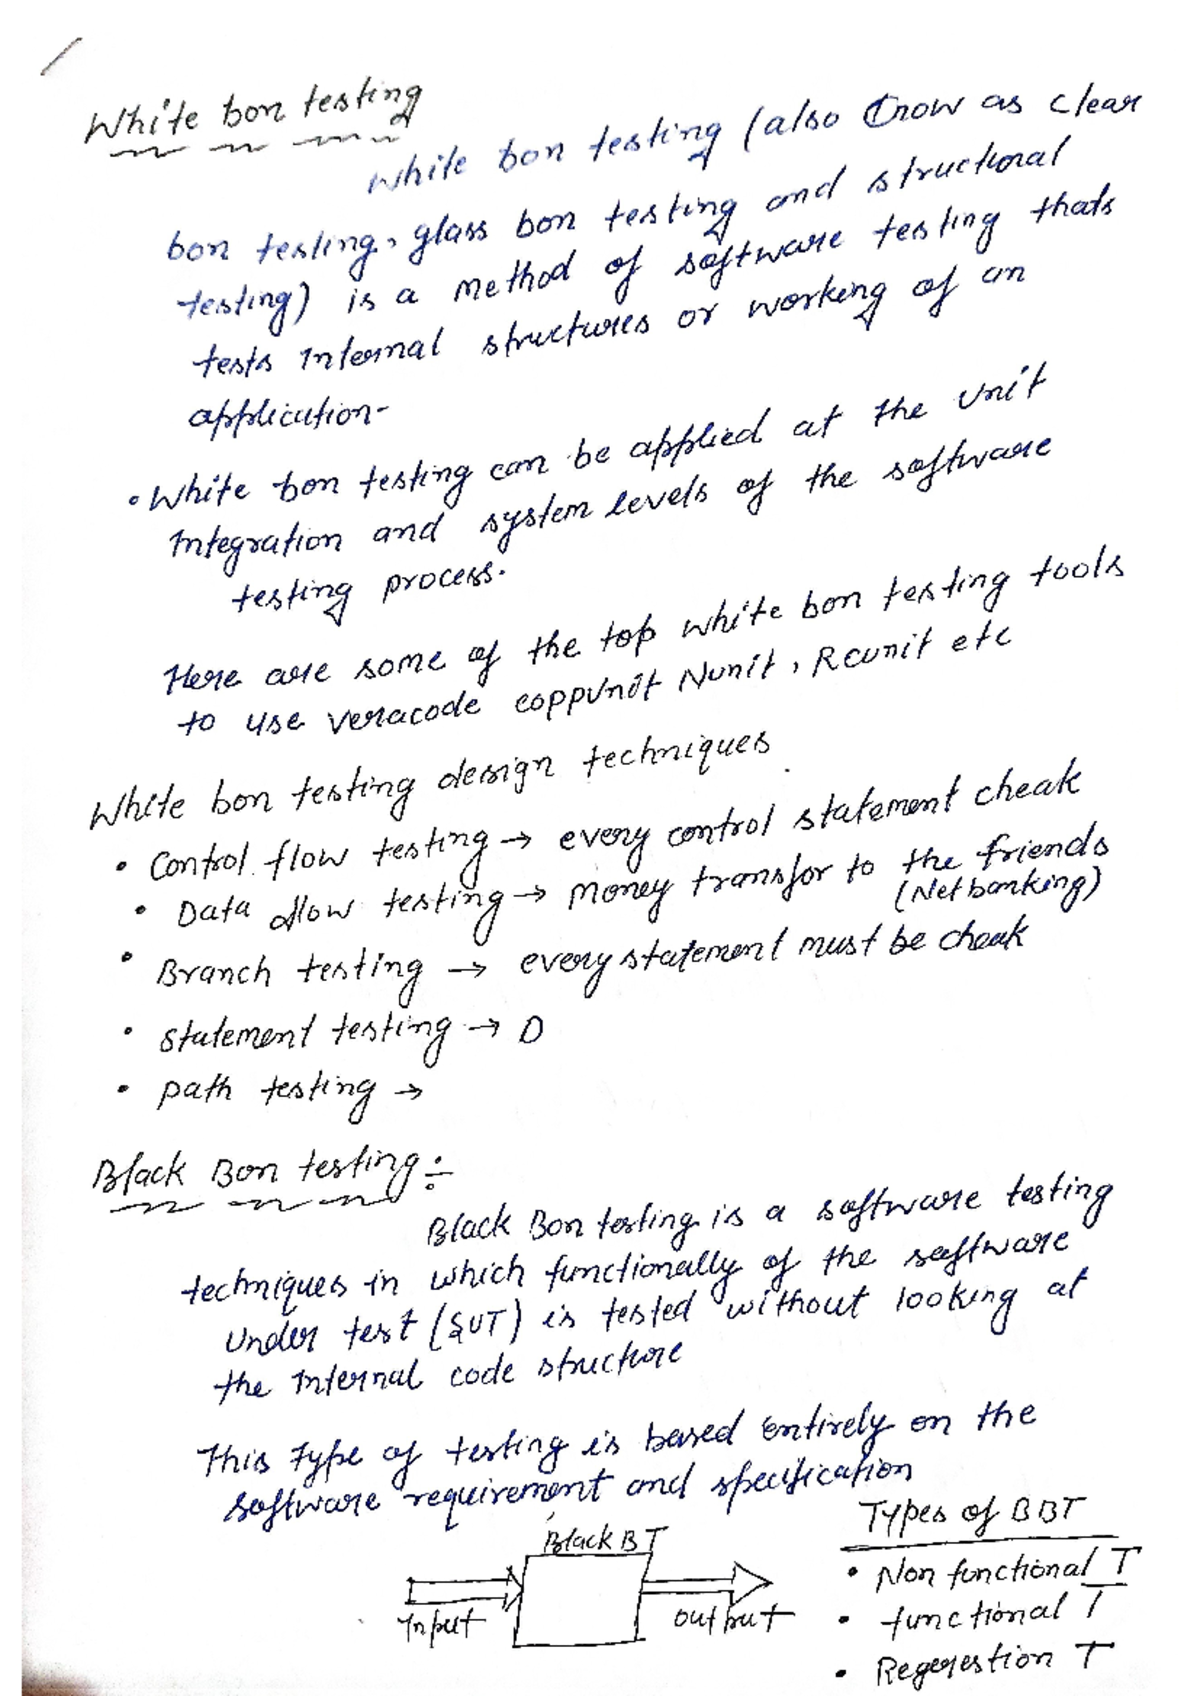 White bon testing
white bon testing (also know as clear
bon testing, glass bon testing and structural
testing) is a method of software testing thats
tests Internal structures or working of an
application-
• White bon testing can be applied at the Unit
Integration and system levels of the software
testing process.
Here are some of the top white bon testing tools
to use veracode coppunit Nunit, Rcunit etc
White bon testing design techniques
• Control flow testing → every control statement cheak
• Data flow testing → money transfor to the friends
(Netbanking)
• Branch testing → every statement must be cheak
• statement testing → D
• path testing →
Black Bon testing ÷
Black Bon testing is a software testing
techniques in which functionally of the software
under test (SUT) is tested without looking at
the internal code structure
This type of testing is based entirely on the
software requirement and specification
Black BT
Input
output
Types of BBT
• Non functional T
• functional T
• Regerestion T